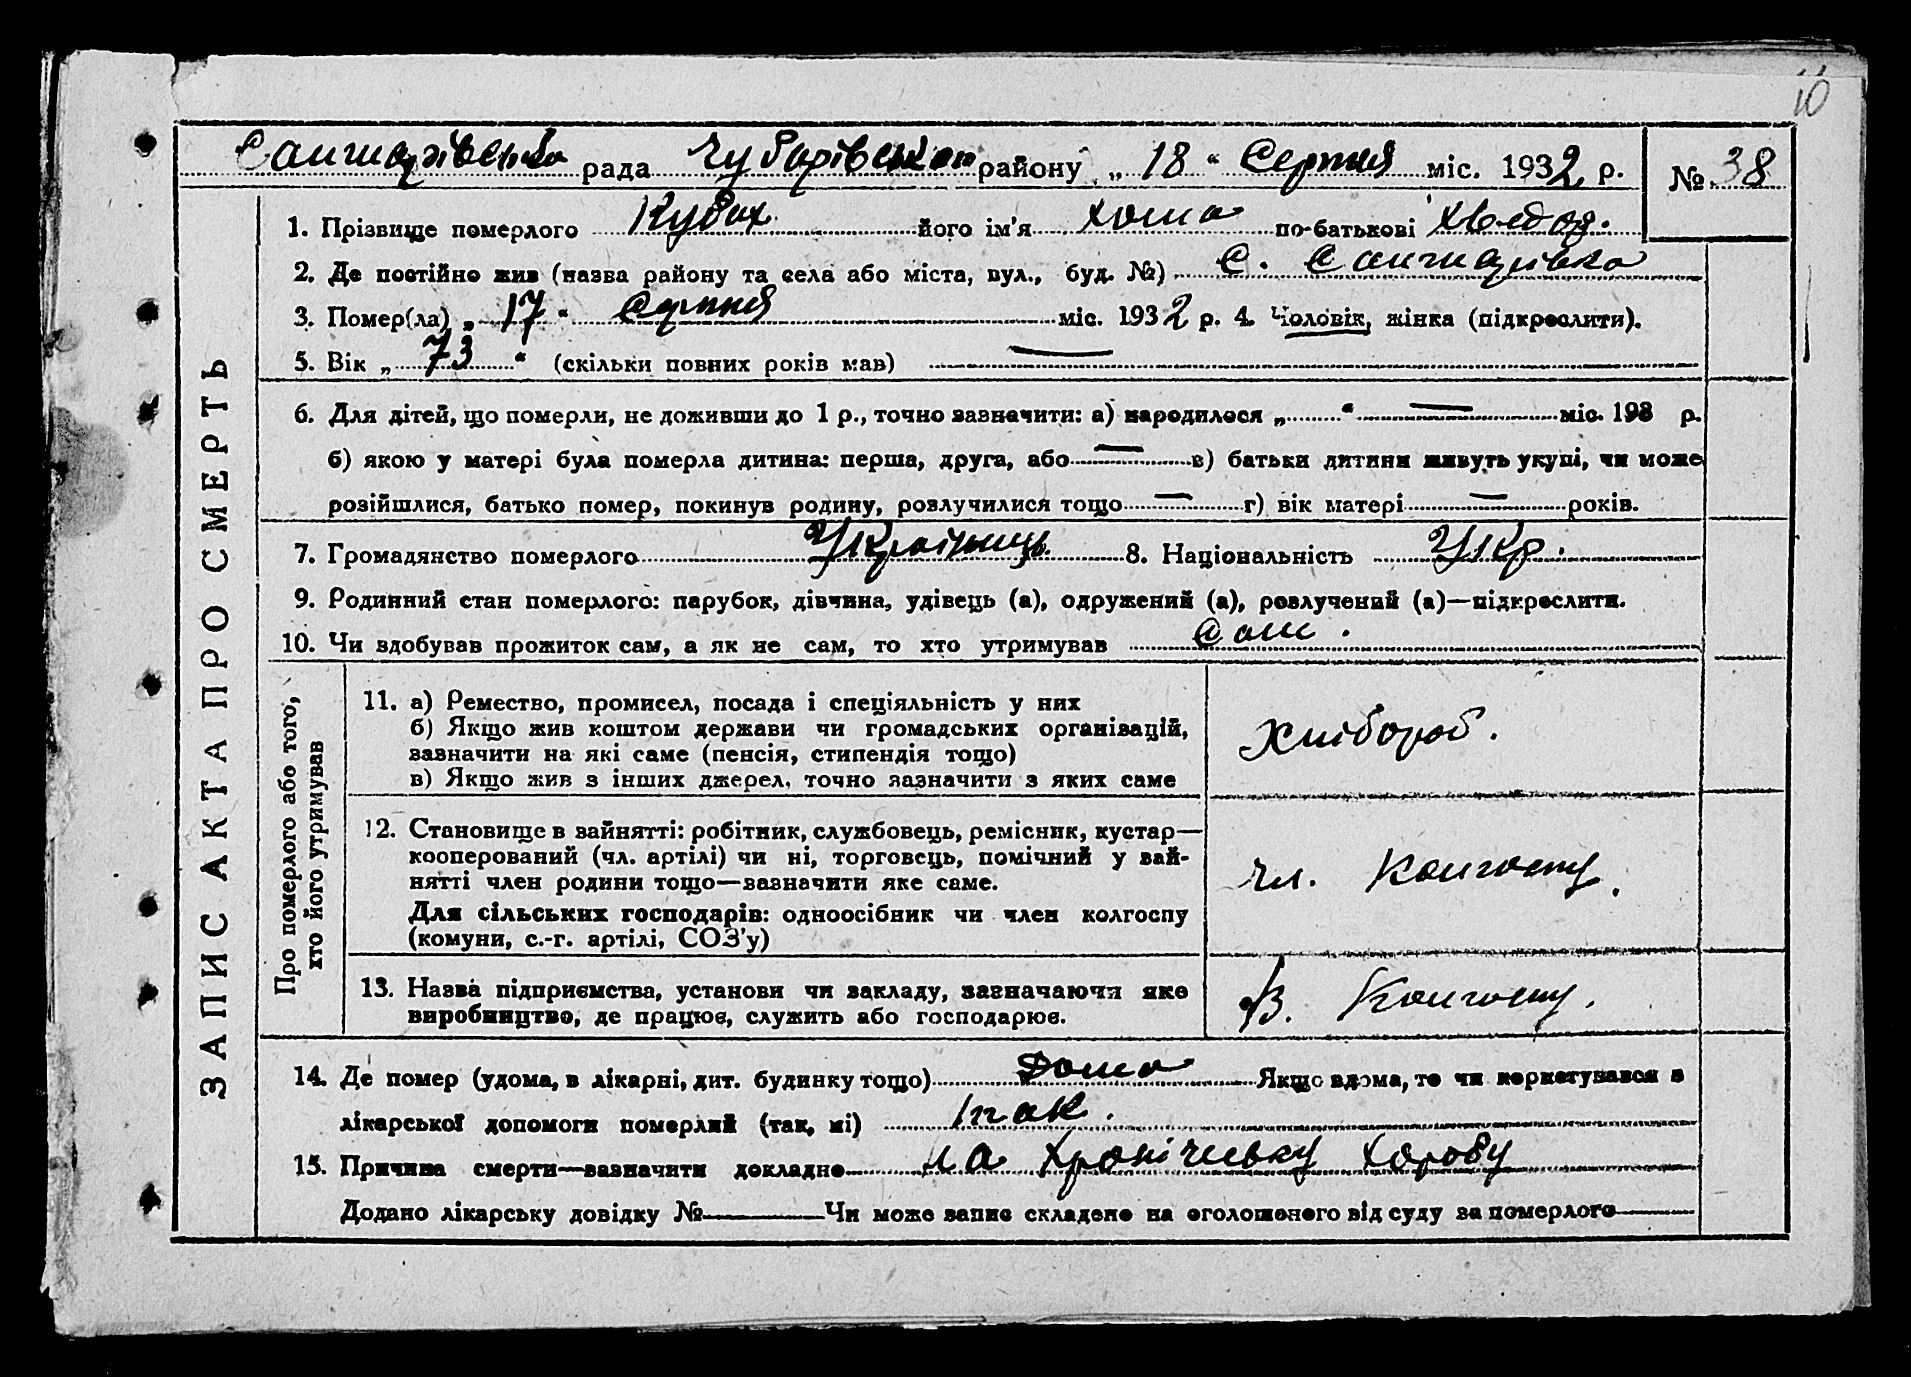 10
Санжарівська рада Чубарівського району „ 18 “ Серпня міс. 1932 р. № 38
1. Прізвище померлого Кубах його ім'я Хома по-батькові Хведор.
2. Де постійно жив (назва району та села або міста, вул., буд. №) с. Санжарівка
3. Помер(ла) „ 17 “ Серпня міс. 1932 р. 4. Чоловік, жінка (підкреслити).
5. Вік „ 73 “ (скільки повних років мав) —
6. Для дітей, що померли, не доживши до 1 р., точно зазначити: а) народилося „ “ — міс. 193 р.
б) якою у матері була померла дитина: перша, друга, або — в) батьки дитини живуть укупі, чи може
розійшлися, батько помер, покинув родину, розлучилися тощо — г) вік матері — років.
7. Громадянство померлого Українець 8. Національність Укр.
9. Родинний стан померлого: парубок, дівчина, удівець (а), одружений (а), розлучений (а)—підкреслити.
10. Чи здобував прожиток сам, а як не сам, то хто утримував Сам.
ЗАПИС АКТА ПРО СМЕРТЬ
Про померлого або того,
хто його утримував
11. а) Ремество, промисел, посада і спеціяльність у них
б) Якщо жив коштом держави чи громадських організацій,
зазначити на які саме (пенсія, стипендія тощо)
в) Якщо жив з інших джерел, точно зазначити з яких саме
Хлібороб.
12. Становище в зайнятті: робітник, службовець, ремісник, кустар—
кооперований (чл. артілі) чи ні, торговець, помічний у зай-
нятті член родини тощо—зазначити яке саме.
Для сільських господарів: одноосібник чи член колгоспу
(комуни, с.-г. артілі, СОЗ'у)
чл. Колгоспу.
13. Назва підприємства, установи чи закладу, зазначаючи яке
виробництво, де працює, служить або господарює.
В. Колгоспу.
14. Де помер (удома, в лікарні, дит. будинку тощо) Дома Якщо вдома, то чи користувався з
лікарської допомоги померлий (так, ні) так.
15. Причина смерти—зазначити докладно на хронічеську хоробу
Додано лікарську довідку № — Чи може запис складено на оголошеного від суду за померлого —